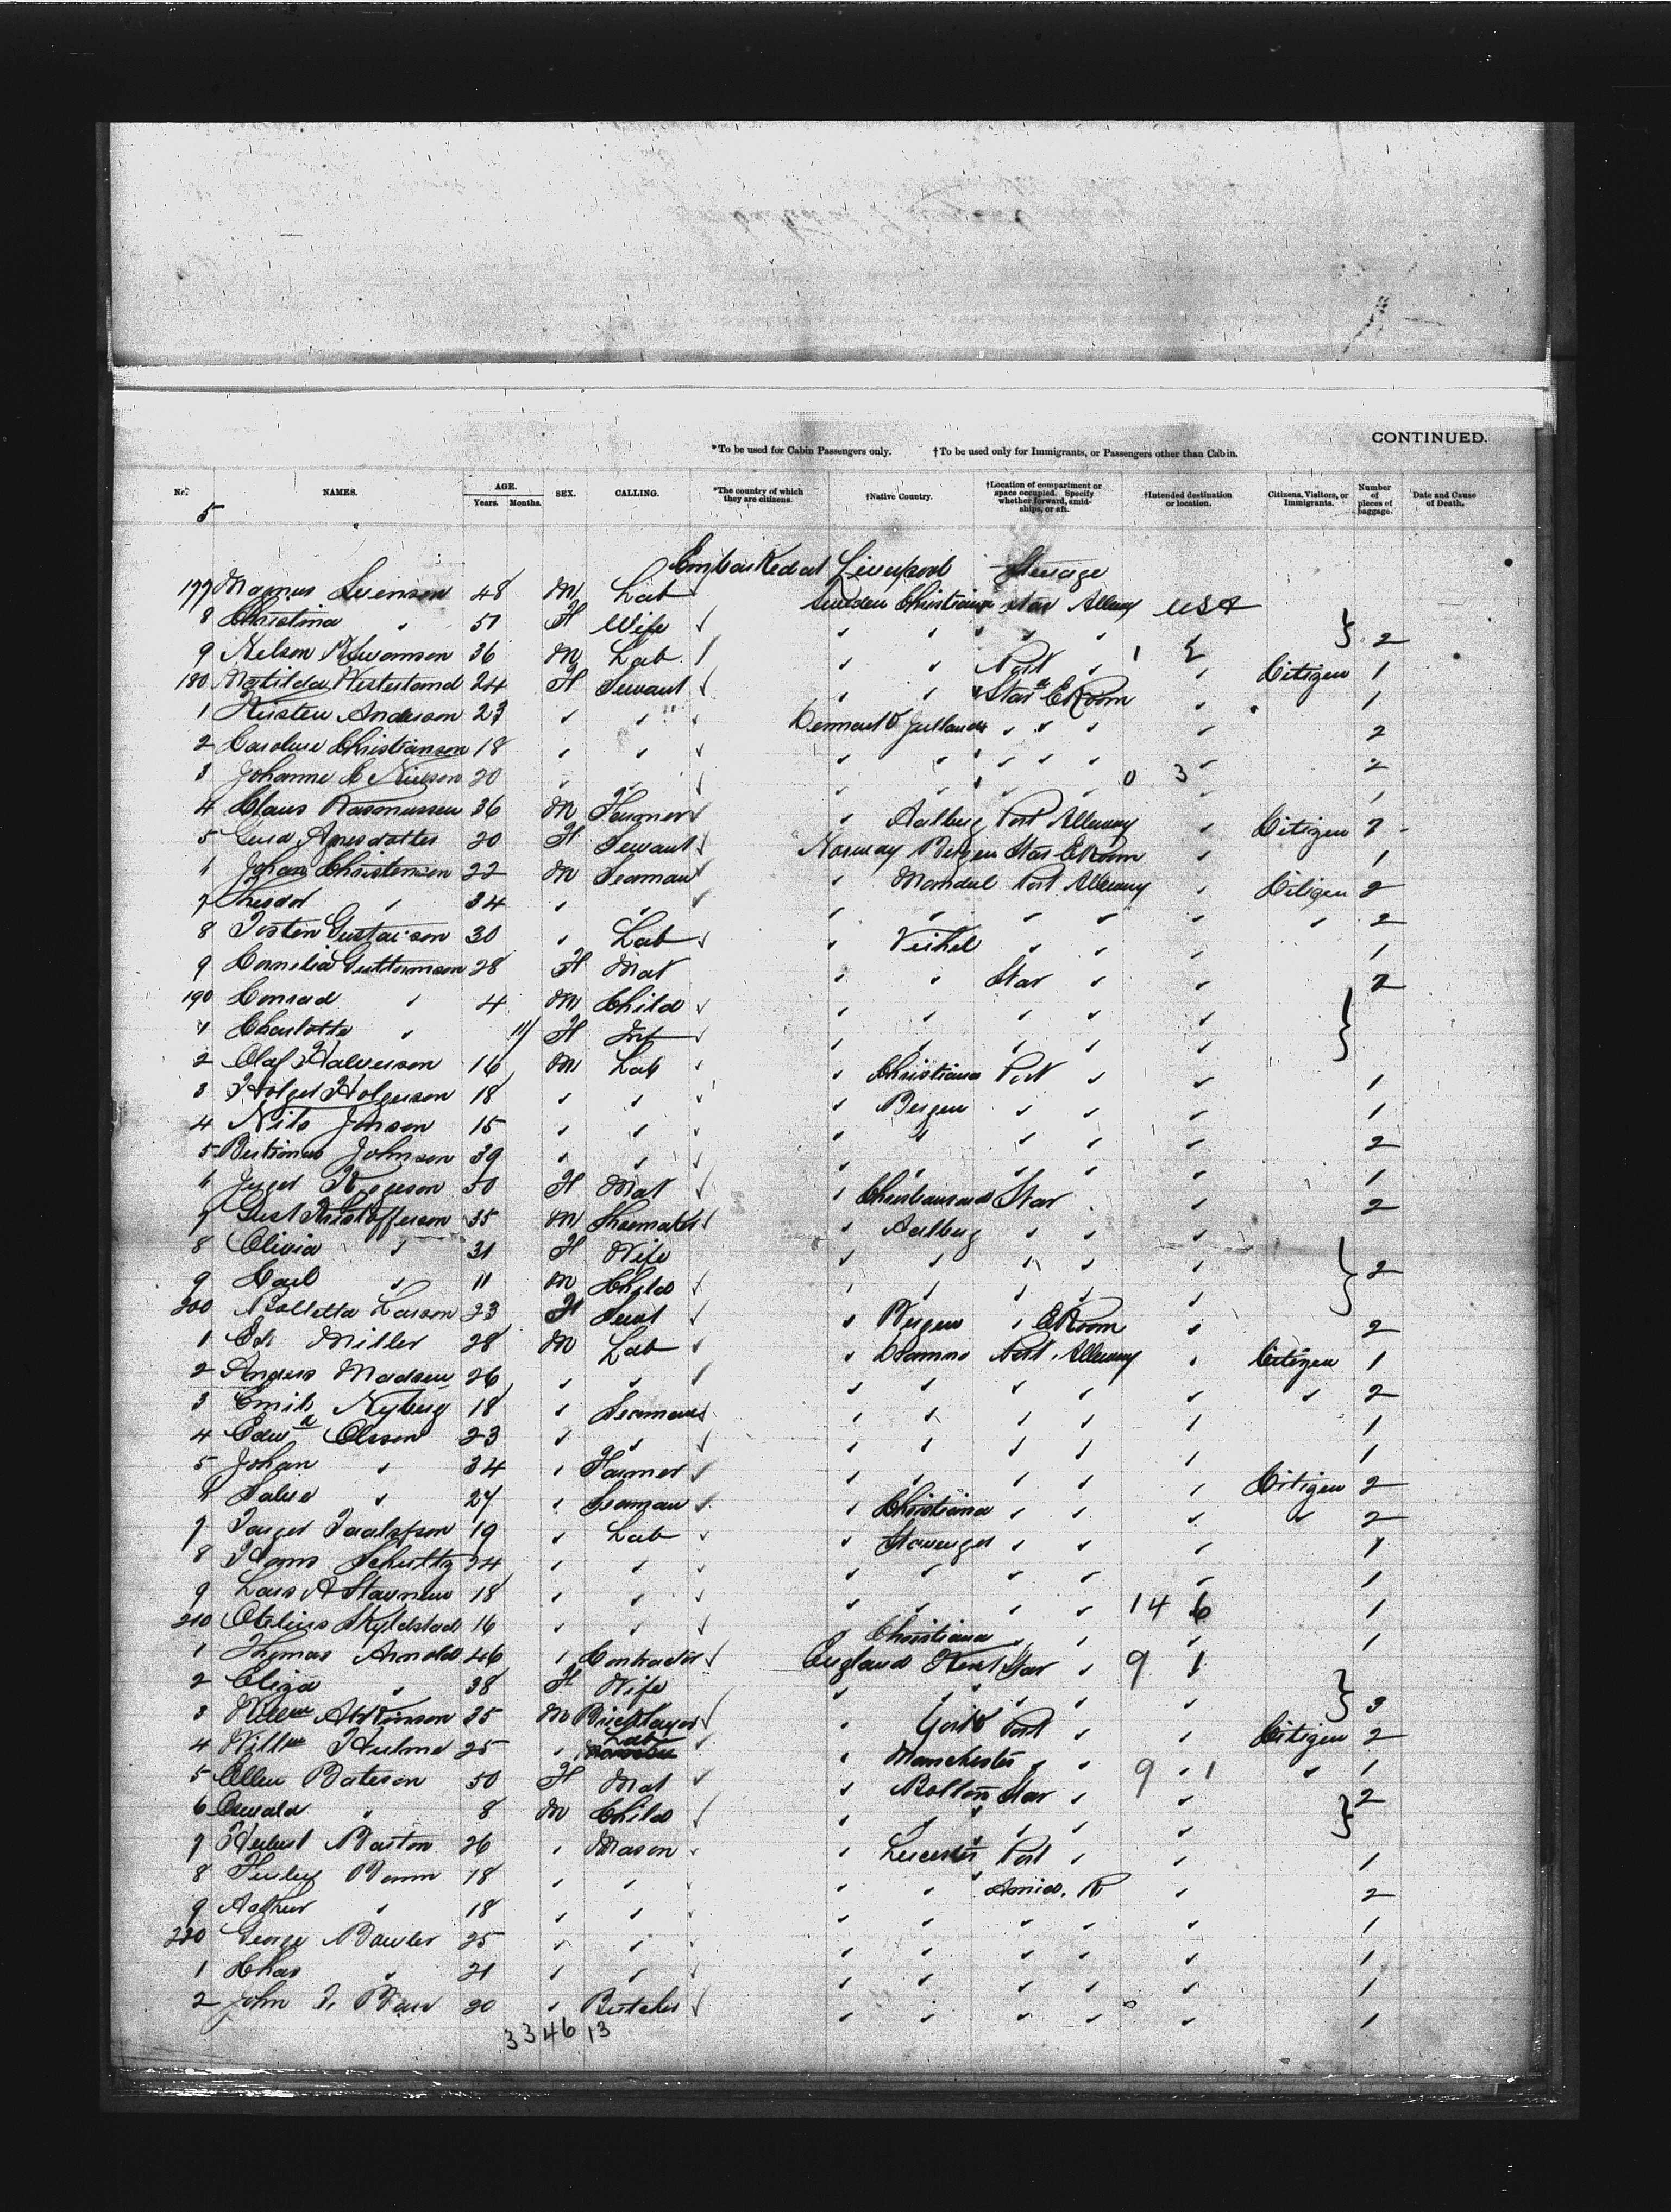 CONTINUED.
*To be used for Cabin Passengers only. †To be used only for Immigrants, or Passengers other than Cabin.
No. NAMES. AGE. Years. Months. SEX. CALLING. *The country of which they are citizens. †Native Country. †Location of compartment or space occupied. Specify whether forward, amidships, or aft. †Intended destination or location. Citizens, Visitors, or Immigrants. Number of pieces of baggage. Date and Cause of Death.
5
Embarked at Liverpool Steerage
177 Magnus Svenson 48 M Lab Sweden Christiana Star Allewy USA
8 Christina " 51 F Wife " " " " } 2
9 Nelson Swanson 36 M Lab " " Port " 1 2 " Citizen 1
180 Matilda Westerland 24 F Servant " " Star E Room " 1
1 Kirsten Anderson 23 " " Denmark Jutland " " " " 2
2 Caroline Christianson 18 " " " " " " " 2
3 Johanne C Nielson 20 " " " " " 0 3 " 1
4 Claus Rasmussen 36 M Farmer " Aalberg Port Alleway " Citizen 2
5 Agnesdatter 20 F Servant Norway Bergen Star E Room " 1
6 Johan Christensen 22 M Seaman " Mandal Port Alleway " Citizen 2
7 Theodor " 34 " " " " " " " " 2
8 Tosten Gustavson 30 " Lab " " " " 1
9 Cornelia Guttormson 28 F Mat " " Star " 2
190 Conrad " 4 M Child " " " " " }
1 Charlotte " 11 F Inf " " " " "
2 Olaf Halverson 16 M Lab " Christiana Port " " 1
3 Holger Holgerson 18 " " " Bergen " " " 1
4 Nils Jonson 15 " " " " " " " 2
5 Johnson 39 " " " " " " " 1
6 50 F Mat " Christiansand Star " 2
7 Gust Kristofferson 35 M Shoemaker " Aalberg " " "
8 Olivia " 31 F Wife " " " " " } 2
9 Carl " 11 M Child " " " " "
200 Bolletta Larson 23 F Servt " Bergen " E Room " 2
1 Ed. Miller 28 M Lab " Port Alleway " Citizen 1
2 Anders Madsen 26 " " " " " " " " 2
3 Emil Nyberg 18 " Seaman " " " " " 1
4 Edwd Olsson 23 " " " " " " " 1
5 Johan " 34 " Farmer " " " " " Citizen 2
6 " 27 " Seaman " Christiana " " " " 2
7 19 " Lab " Stavenger " " " 1
8 Hans Schultz 24 " " " " " " " 1
9 Lars A 18 " " " " " " 14 6 1
210 16 " " " Christiana " " " 1
1 Thomas Arnold 46 " Contractor England Kent Star " 9 1
2 Eliza " 38 F Wife " " " " " } 3
3 Willm Atkinson 35 M Bricklayer " York Port " " Citizen 2
4 Willm Hulme 25 " Lab " Manchester " " 9 1 " 1
5 Ellen Bateson 50 F Mat " Bolton Star " " } 2
6 Oswald " 8 M Child " " " " "
7 Herbert Barton 26 " Mason " Leicester Port " " 1
8 18 " " " " Amid. R " 2
9 Arthur " 18 " " " " " " " 1
220 George Bowler 25 " " " " " " " 1
1 Chas " 21 " " " " " " " 1
2 John 20 " Butcher " " " " " 1
33 46 13